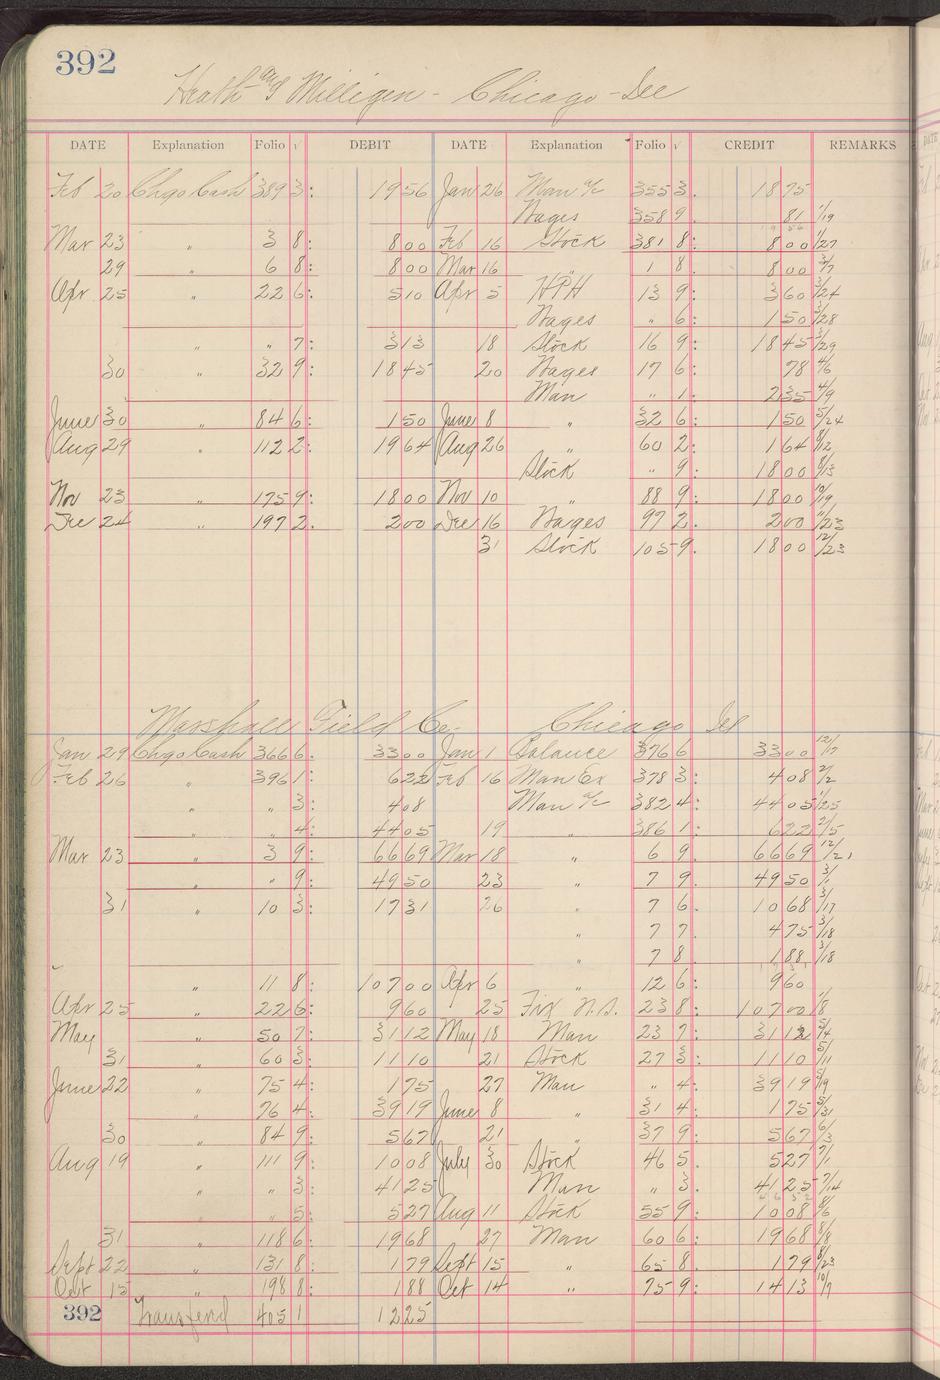 392
Heath and Milligen - Chicago - Ill
DATE Explanation Folio √ DEBIT DATE Explanation Folio √ CREDIT REMARKS
Feb 20 Chgo Cash 389 3: 19 56 Jan 26 Man a/c 355 3. 18 75
Wages 358 9. 81 1/19
Mar 23 " 3 8: 8 00 Feb 16 Stock 381 8: 8 00 1/27
29 " 6 8: 8 00 Mar 16 " 1 8. 8 00 3/7
Apr 25 " 22 6: 5 10 Apr 5 HPH 13 9: 3 60 3/24
Wages " 6: 1 50 3/28
" " 7: 3 13 18 Stock 16 9: 18 45 3/29
30 " 32 9: 18 45 20 Wages 17 6 78 4/6
Man " 1. 2 35 4/9
June 30 " 84 6: 1 50 June 8 " 32 6: 1 50 5/24
Aug 29 " 112 2: 19 64 Aug 26 " 60 2: 1 64 8/12
Stock " 9: 18 00 8/13
Nov 23 " 175 9: 18 00 Nov 10 " 88 9: 18 00 10/19
Dec 24 " 197 2. 2 00 Dec 16 Wages 97 2. 2 00 11/23
31 Stock 105 9. 18 00 12/23
Marshall Field Co. Chicago Ill
Jan 29 Chgo Cash 366 6: 33 00 Jan 1 Balance 376 6 33 00 12/17
Feb 26 " 396 1: 6 22 Feb 16 Man Ex 378 3: 4 08 2/2
" " 3: 4 08 Man a/c 382 4: 44 05 1/25
" " 4: 44 05 19 " 386 1: 6 22 2/5
Mar 23 " 3 9: 66 69 Mar 18 " 6 9. 66 69 12/21
" " 9: 49 50 23 " 7 9. 49 50
31 " 10 3: 17 31 26 " 7 6. 10 68 3/17
" 7 7. 4 75 3/18
" 7 8 1 88 3/18
" 11 8: 107 00 Apr 6 " 12 6: 9 60
Apr 25 " 22 6: 9 60 25 Fix N.S. 23 8: 107 00
May " 50 7: 31 12 May 18 Man 23 7: 31 12 5/4
31 " 60 3: 11 10 21 Stock 27 3: 11 10 5/11
June 22 " 75 4: 1 75 27 Man " 4: 39 19 5/19
" 76 4: 39 19 June 8 " 31 4: 1 75 5/31
30 " 84 9: 5 67 21 " 37 9: 5 67 6/3
Aug 19 " 111 9: 10 08 July 30 Stock 46 5. 5 27 7/1
" " 3: 41 25 Man " 3. 41 25 7/14
" " 5: 5 27 Aug 11 Stock 55 9: 10 08 8/6
31 " 118 6: 19 68 27 Man 60 6: 19 68 8/8
Sept 22 " 131 8: 1 79 Sept 15 " 65 8. 1 79 8/23
Oct 15 " 198 8: 1 88 Oct 14 " 75 9: 14 13 10/7
392 Transferd 405 1 12 25